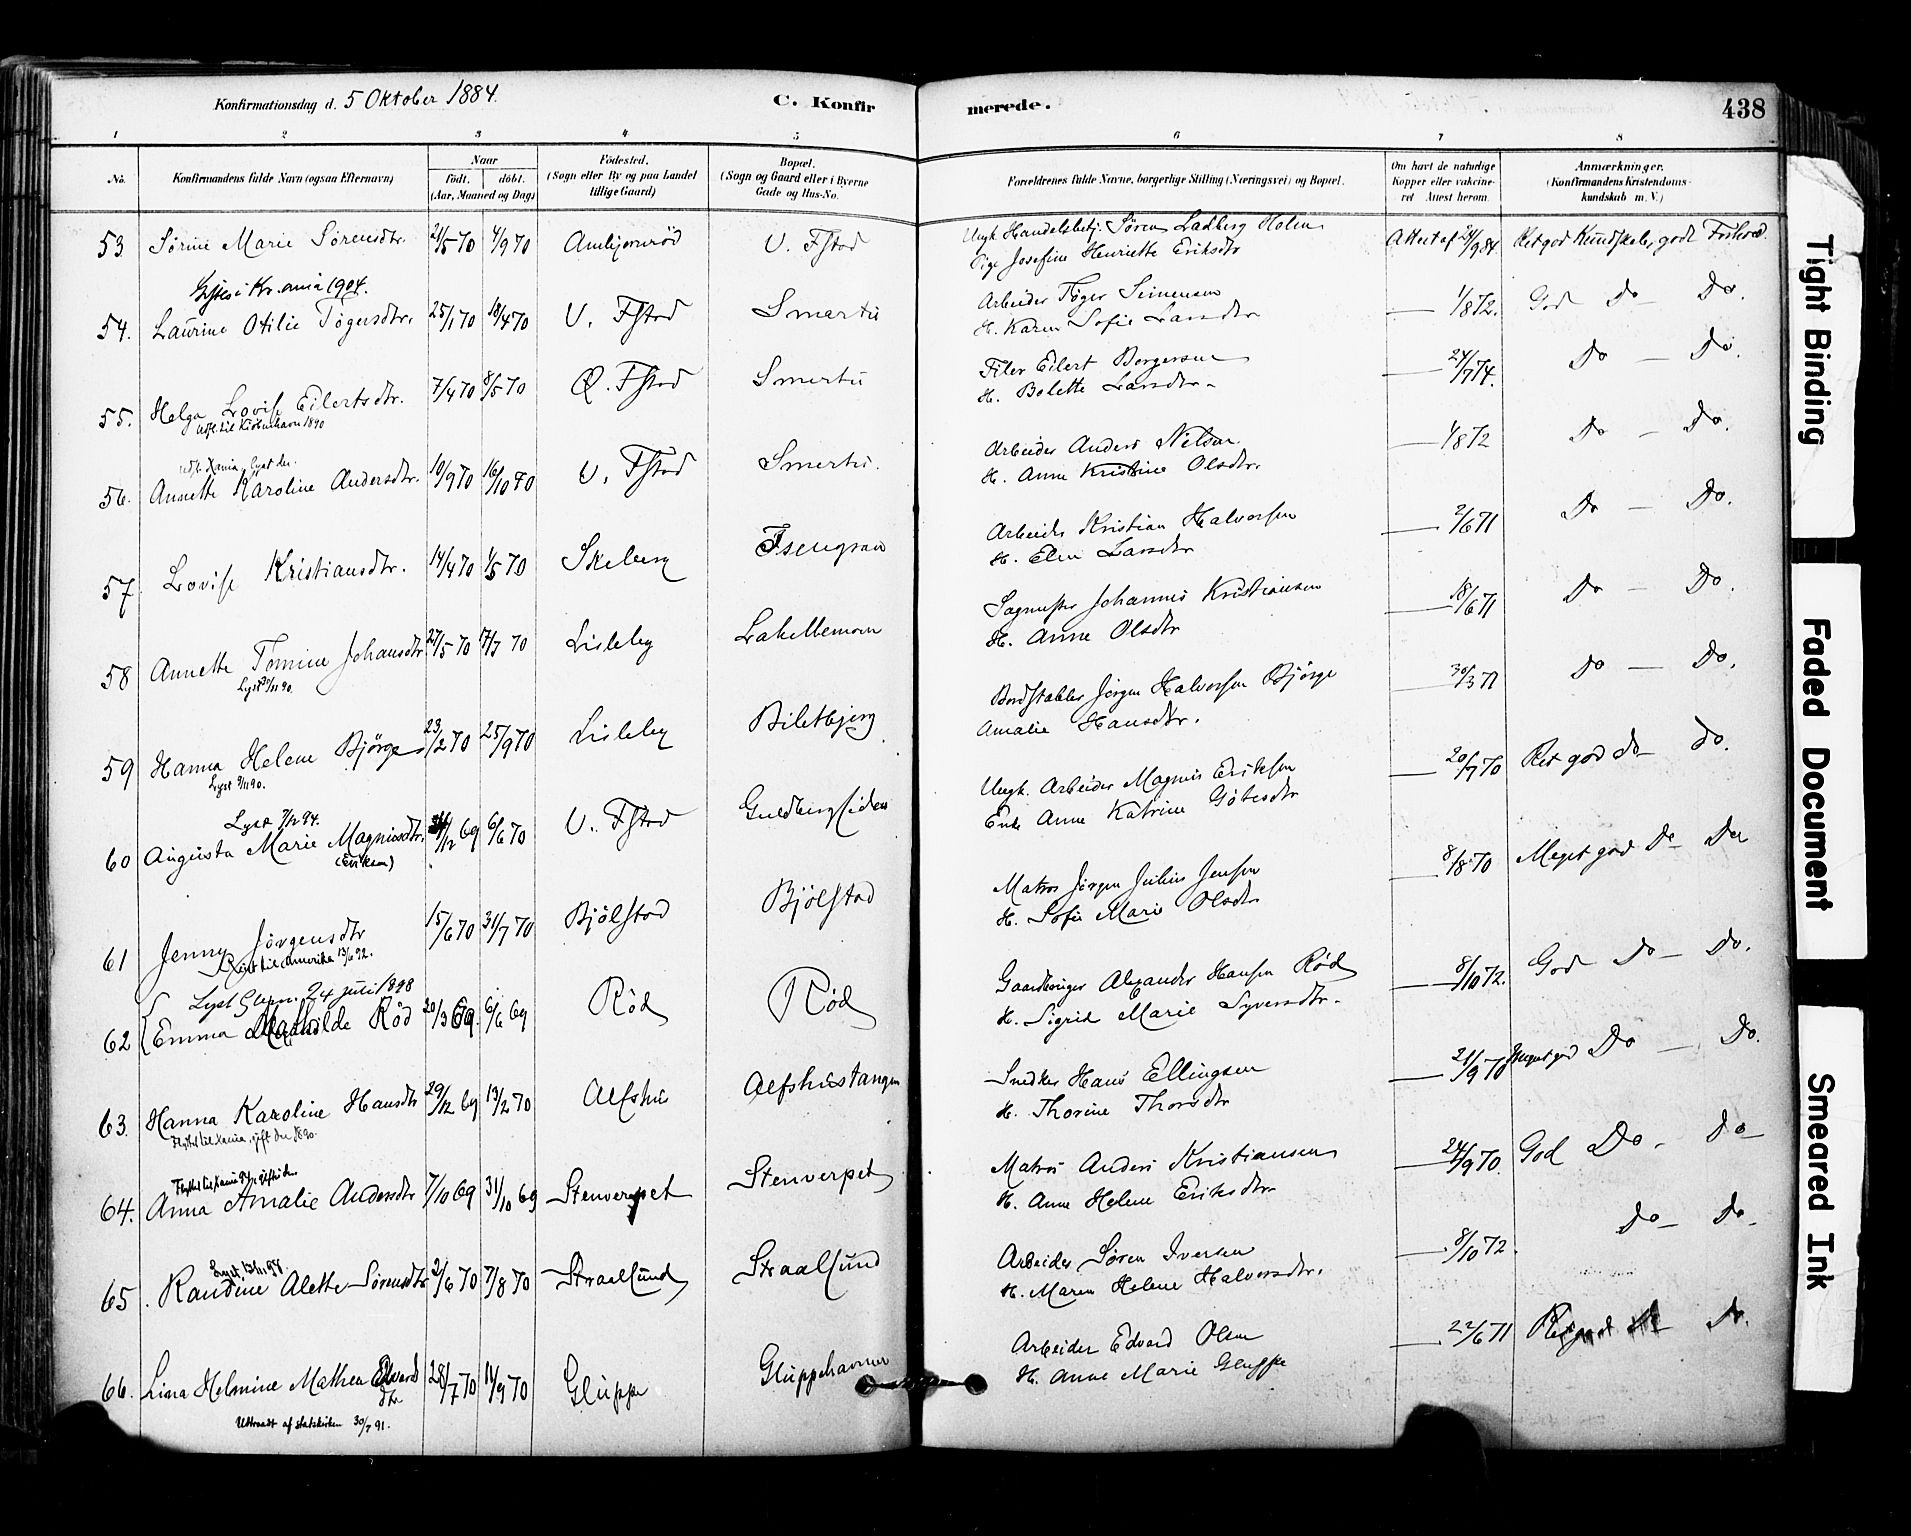 Konfirmationsdag d. 5 Oktober 1884.
C. Konfir
merede.
438
1 2 3 4 5 6 7 8
No.
Konfirmandens fulde Navn (ogsaa Efternavn)
Naar
födt. döbt.
(Aar, Maaned og Dag)
Födested.
(Sogn eller By og paa Landet
tillige Gaard)
Bopæl.
(Sogn og Gaard eller i Byerne
Gade og Hus-No.
Forældrenes fulde Navne, borgerlige Stilling (Næringsvei) og Bopæl.
Om havt de naturlige
Kopper eller vakcine-
ret Attest herom.
Anmærkninger.
(Konfirmandens Kristendoms-
kundskab m. V.)
53. Sørine Marie Sørensdtr. 21/5 70 4/9 70 Ambjørnrød V. FStad
Ungk. Handelsbetj. Søren Ladberg Holm
Pige Josefine Henriette Eriksdtr
Attest af 24/9 84 Ret god Kundskab, godt Forhold.
Lyses i Kr.ania 1904.
54. Laurine Otilie Tøgersdtr. 25/1 70 18/4 70 V. FStad Smertu
Arbeider Tøger Simensen
H. Karen Sofie Larsdtr
— 1/8 72. God Do — Do.
55. Helga Lovise Eilertsdtr. 7/4 70 8/5 70 Ø. FStad Smertu
Udfl. til Kiøbenhavn 1890
Filer Eilert Borgersen
H. Bolette Larsdtr
— 24/7 74. Do — Do.
56. Annette Karoline Andersdtr. 10/9 70 16/10 70 V. FStad Smertu.
Arbeider Anders Nilsen
H. Anne Kristine Olsdtr.
— 1/8 72 Do — Do.
57. Lovise Kristiansdtr. 14/4 70 1/5 70 Skeberg
Arbeider Kristian Halvorsen
H. Elen Larsdtr
— 2/6 71 Do — Do.
58 Annette Tomine Johansdtr 27/5 70 17/7 70 Lisleby Lakellemoen
Johannes Kristiansen
H. Anne Olsdtr
— 18/6 71 Do — Do.
59 Hanna Helene Bjørge 23/2 70 25/9 70 Lisleby Biletbjerg
Lyst 9/11 90.
Bordstabler Jørgen Halvorsen Bjørge
Amalie Hansdtr.
— 30/3 71 Do — Do.
Lyst 7/12 94.
60 Augusta Marie Magnusdtr. 6/6 70 V. FStad Guldbergsiden
(Eriksen)
Ungk. Arbeider Magnus Eriksen
Enke Anne Katrine Gøtesdtr
— 20/7 70 Ret god do — do.
61 Jenny Jørgensdtr 15/6 70 31/7 70 Bjölstad Bjölstad
Reist til Amerika 13/6 92.
Matros Jørgen Julius Jensen
H. Sofie Marie Olsdtr
— 8/8 70 Meget god Do — Do
Lyst Glem. 24 juli 1898
62 Emma Mathilde Röd 20/3 69. 6/6 69 Röd Röd
Gaardbruger Alexander Hansen Röd
H. Sigrid Marie Syversdtr.
— 8/10 72. God Do — Do.
63. Hanna Karoline Hansdtr 29/12 69 13/2 70 Alfshus Alfshustangen
Flyttet til Kania, gift der 1890.
Snedker Hans Ellingsen
H. Thorine Thorsdtr
— 21/9 70 Meget god Do — Do.
64. Anna Amalie Andersdtr 7/10 69 31/10 69 Stenverpet Stenverpet
Matros Anders Kristiansen
H. Anne Helene Eriksdtr
— 24/9 70. God Do — do —
Lyst 13/11 97.
65. Randine Alette Sørensdtr 2/6 70 7/8 70 Straalsund Straalsund
Arbeider Søren Iversen
H. Maren Helene Halvorsdtr.
— 8/10 72. Do — Do —
66. Lina Helmine Mathea Edvards 28/7 70 11/9 70 Gluppe Gluppehavnen
dtr
Udtraadt af statskirken 30/7 91.
Arbeider Edvard Olsen
H. Anne Marie Gluppe
— 22/6 71 Ret god Do.
Tight Binding
Faded Document
Smeared Ink